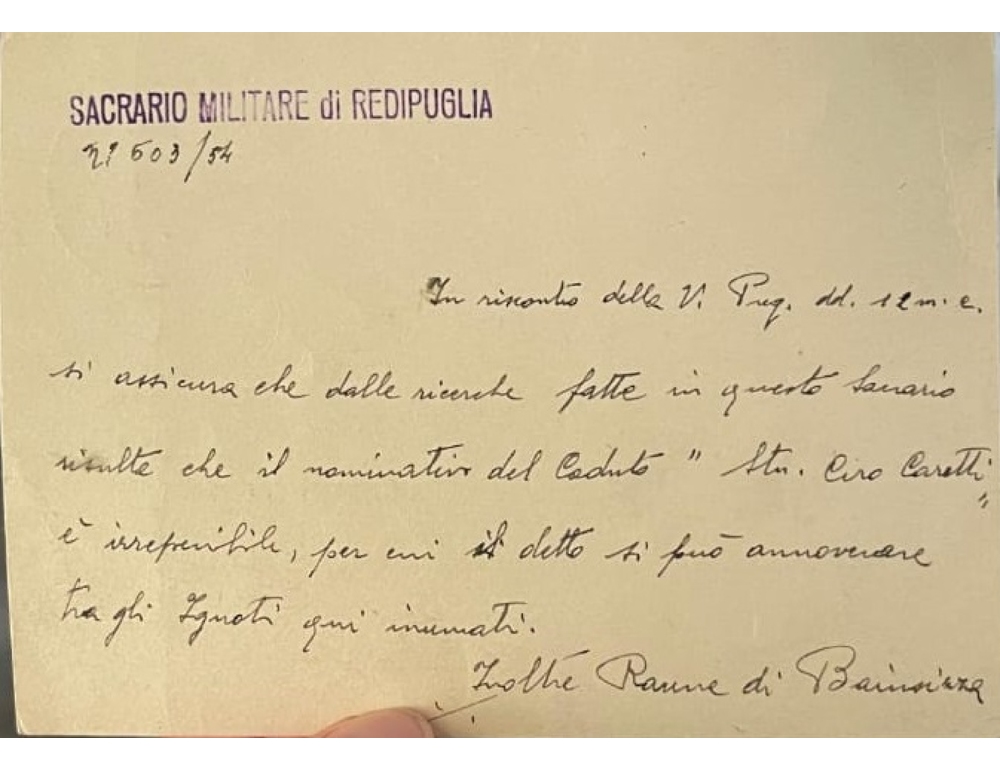 SACRARIO MILITARE di REDIPUGLIA
N° 603/54
In riscontro della V. Preg. dd. 12 m. c.
si assicura che dalle ricerche fatte in questo Sacrario
risulte che il nominativo del Caduto " Stn. Ciro Caretti "
è irreperibile, per cui il detto si può annoverare
tra gli Ignoti qui inumati.
Inoltre Ravne di Bainsizza